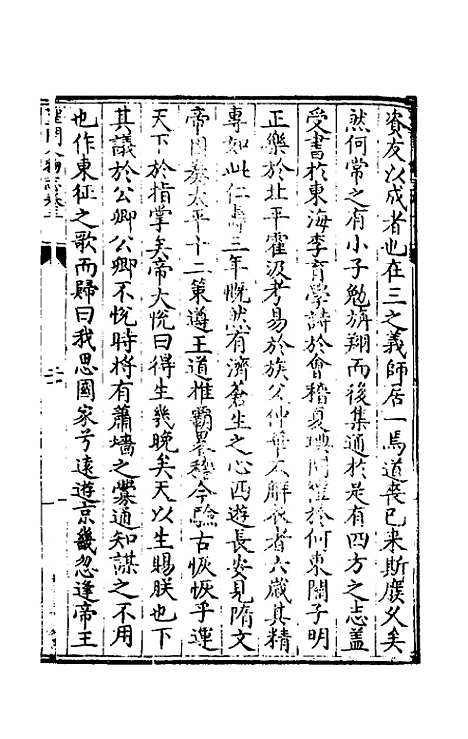 資友以成者也在三之義師居一焉道喪已来斯廢乆矣
然何常之有小子勉旃翔而後集通於是有四方之志蓋
受書於東海李育學詩於會稽夏琠問禮於何東關子明
正樂於北平霍汲考易於族父仲華不解衣者六歲其精
專如此仁壽三年慨然有濟蒼生之心西遊長安見隋文
帝因奏太平十二策遵王道推霸畧稽今驗古恢恢乎運
天下於指掌矣帝大悅曰得生幾晚矣天以生賜朕也下
其議於公卿公卿不悅時將有蕭墻之釁通知謀之不用
也作東征之歌而歸曰我思國家兮遠遊京畿忽逢帝王
人物志卷三